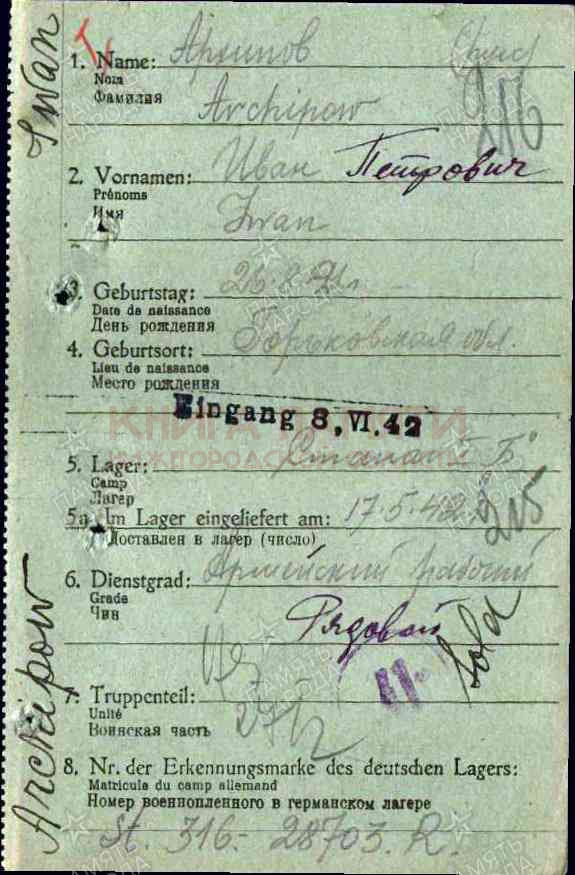 Iwan
Archipow
1. Name: Архипов
Nom
Фамилия
Archipow
2. Vornamen: Иван Петрович
Prénoms
Имя
Iwan
3. Geburtstag:
Date de naissance
День рождения
4. Geburtsort: Горьковская обл.
Lieu de naissance
Место рождения
Eingang 8.VI.42
КНИГА ПАМЯТИ
5. Lager:
Camp
Лагерь
5a Im Lager eingeliefert am: 17.5.42
Доставлен в лагер (число)
6. Dienstgrad: Армейский рабочий
Grade
Чин
Рядовой
Sold
7. Truppenteil:
Unité
Воинская часть
8. Nr. der Erkennungsmarke des deutschen Lagers:
Matricule du camp allemand
Номер военнопленного в германском лагере
St. 316.- 28703. R.